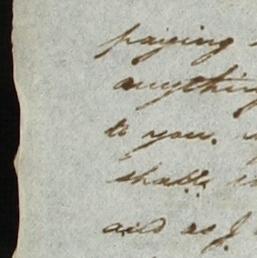 paying
anything
to you.
shall
and as I